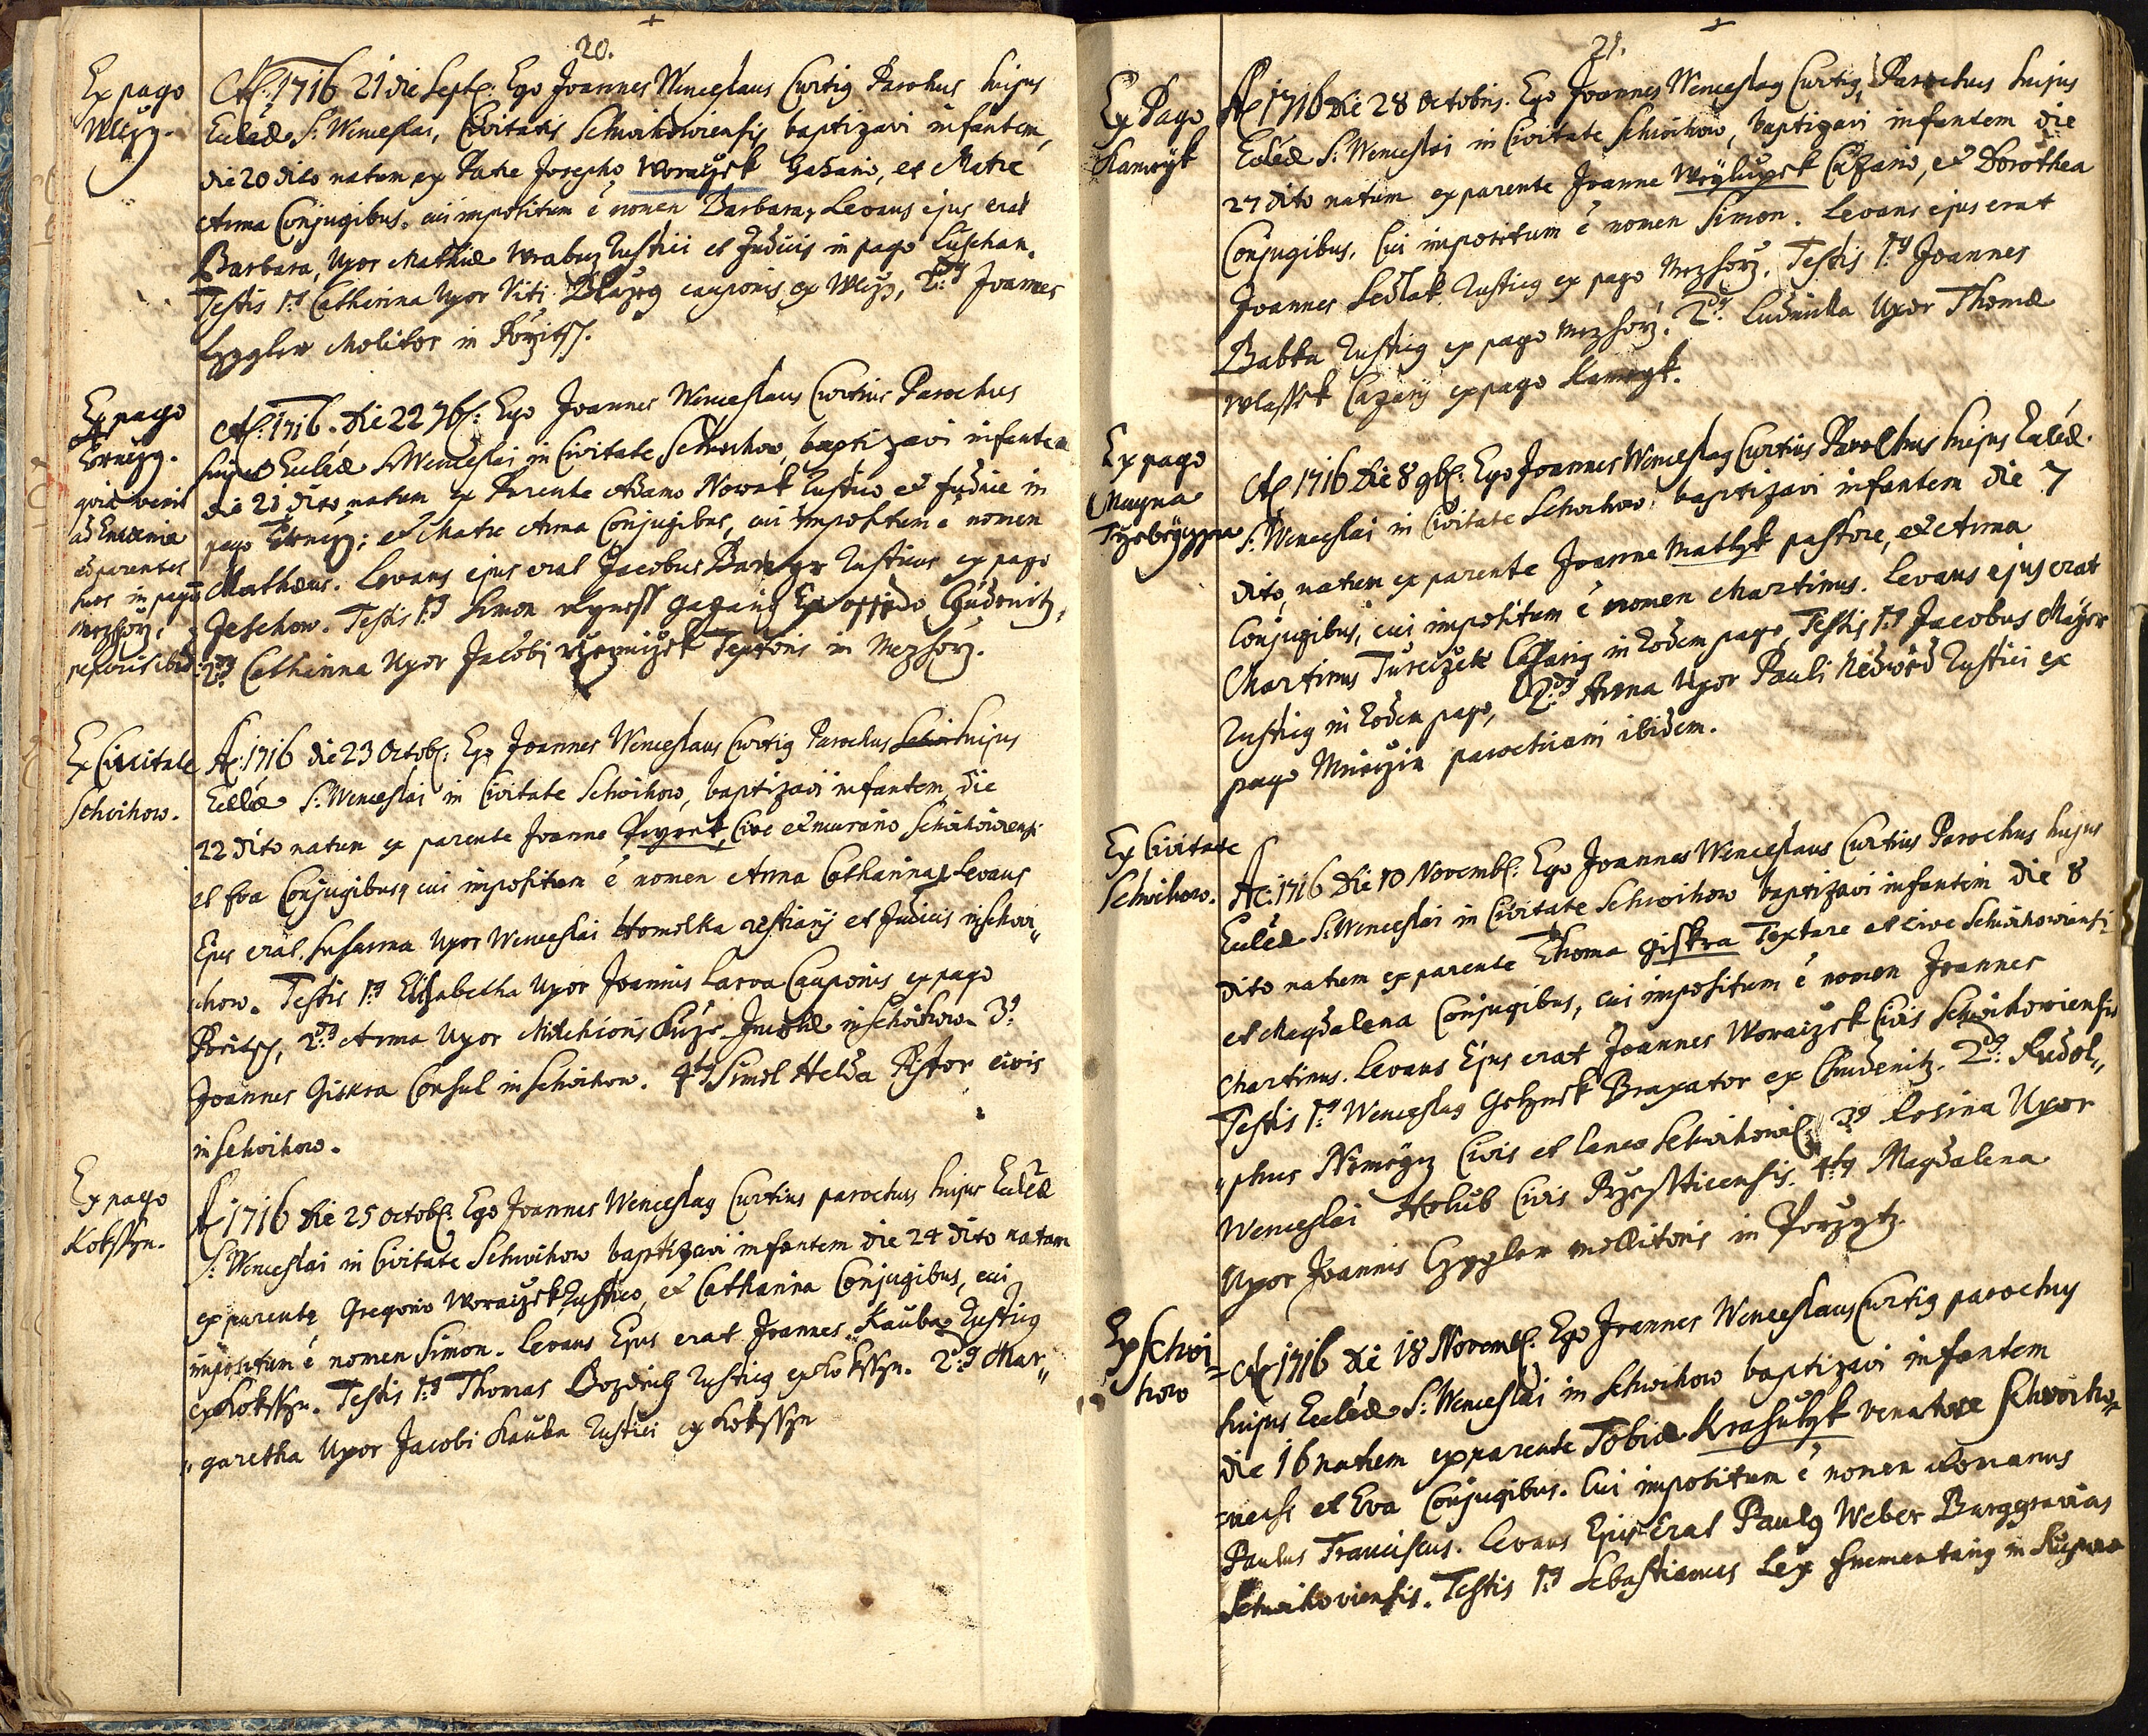 20.
Ex pago
Wlczy.
Ao: 1716 21 die Septe: Ego Joannes Wenceslaus Curtig Parochus hujus
Ecclae S: Wenceslai, Civitatis Schwihowiensis baptizavi infantem,
die 20 dito natum ex Patre Josepho Woraczek Gazario, et Matre
Anna Conjugibus. cui impositum è nomen Barbara, Levans ejus erat
Barbara, Uxor Mathiae Wrabuz Rustici et Judicis in pago Luschan.
Testis 1g Catharina Uxor Viti Blazeg cauponis ex Wlczy, 2dg Joannes
Czygler Molitor in Porzitz.
Ex pago
quia venit
ad
ad parentes
suos in pagu
Mezhorz,
ibid:
Ao: 1716. Die 22 7bs: Ego Joannes Wenceslaus Curtius Parochus
hujus Ecclae S: Wenceslai in Civitate Schwihow, baptizavi infantem
die 21 dito natum ex Parente Adamo Nowak Rustico et Judice in
pago et Matre Anna Conjugibus, cui impositum è nomen
Mathaeus. Levans ejus erat Jacobus Rusticus ex pago
Jeschow. Testis 1g Simon Gazarig Ex oppido Chudenitz,
2dg Catharina Uxor Jacobi Textoris in Mezhorz.
Ex Civitate
Schwihow.
Ao: 1716 die 23 Octobs: Ego Joannes Wenceslaus Curtig Parochus Schwi hujus
Ecclae S: Wenceslai in Civitate Schwihow, baptizavi infantem, die
22 dito natum ex parente Joanne Cive et murario Schwihowiensi
et Eva Conjugibus, cui impositum è nomen Anna Catharina, Levans
Ejus erat. Susanna Uxor Wenceslai Homolka restiarij et Judicis in Schwi„
„how. Testis 1g Elisabetha Uxor Joannis Larva Cauponis ex pago
Poritz, 2dg Anna Uxor Melchioris in Schwihow. 3g
Joannes Giskra Consul in Schwihow. 4tg Simol Helda Pistor civis
in Schwihow.
Ex pago
Kokssyn.
Ao 1716 die 25 Octobs: Ego Joannes Wenceslag Curtius parochus hujus Ecclae
S: Wenceslai in Civitate Schwihow baptizavi infantem die 24 dito natam
ex parente Gregorio Woraczek Rustico, et Catharina Conjugibus, cui
impositum è nomen Simon. Levans Ejus erat Joannes Kauba Rusticg
ex Kokssyn. Testis 1g Thomas Bozdiech Rusticg ex Kokssyn. 2dg Mar„
„garetha Uxor Jacobi Kauba Rustici ex Kokssyn
21.
Ex Pago
Kameyk
Ao 1716 Die 28 Octobris. Ego Joannes Wenceslag Curtig, Parochus hujus
Ecclae S: Wenceslai in Civitate Schwihow, baptizavi infantem die
27 dito natum ex parente Joanne Weylupek Cazario, et Dorothea
Conjugibus. Cui impositum è nomen Simon. Levans ejus erat
Joannes Sedlak Rusticg ex pago Mezhorz. Testis 1g Joannes
Babka Rusticg ex pago Mezhorz. 2dg Ludmilla Uxor Thomae
Wlassek Cazarij ex pago Kameyk.
Ex pago
Magna
Ao 1716 Die 8 9bs: Ego Joannes Wenceslag Curtius Parochus hujus Ecclae.
S: Wenceslai in Civitate Schwihow, baptizavi infantem die 7
dito, natum ex parente Joanne Matlyk pastore, et Anna
Conjugibus, cui impositum è nomen Martinus. Levans ejus erat
Martinus Tureczek Casarig in Eodem pago, Testis 1g Jacobus Mayer
Rusticg in Eodem pago, 2dg Anna Uxor Pauli Nedwed Rustici ex
pago Mieczin parochiani ibidem.
Ex Civitate
Schwihow.
Ao: 1716 Die 10 Novembs: Ego Joannes Wenceslaus Curtius Parochus hujus
Ecclae S: Wenceslai in Civitate Schwihow baptizavi infantem die 8
dito natum ex parente Thoma Giskra Textore et cive Schwihowiensi
et Magdalena Conjugibus, cui impositum è nomen Joannes
Martinus. Levans Ejus erat Joannes Woraczek Civis Schwihowiensis
Testis 1g Wenceslag Braxator ex Chudenitz. 2dg: Rudol„
„phus Nemeyz Civis et Laneo Schwihowis: 3g Rosina Uxor
Wenceslai Holub Civis Przessticensis. 4tg Magdalena
Uxor Joannis Czygler mollitoris in Porzytz.
Ex Schwi=
how
Ao 1716 Die 18 Novembs: Ego Joannes Wenceslaus Curtig parochus
hujus Ecclae S: Wenceslai in Schwihow baptizavi infantem
die 16 natum ex parente Tobia Krasulyk venatore Schwiho=
=wensi et Eva Conjugibus. Cui impositum è nomen Romanus
Paulus Franciscus. Levans Ejus erat Paulg Weber Burggravius
Schwihoviensis. Testis 1g Sebastianus Lex frumentarig in